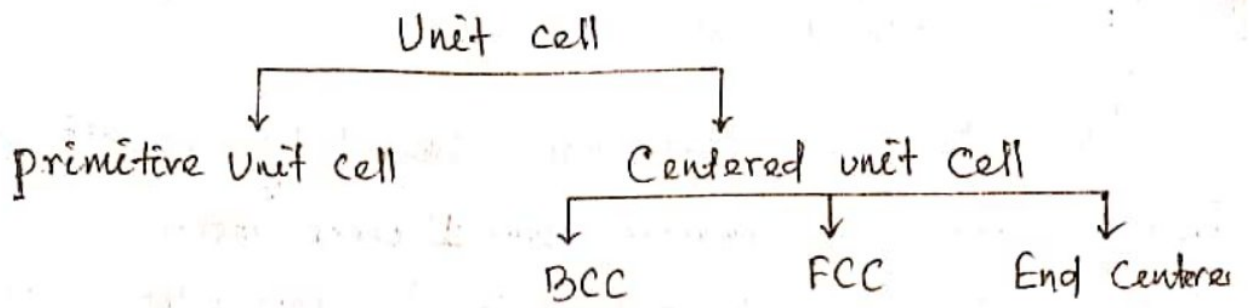 Unit cell
primitive Unit cell Centered unit Cell
BCC FCC End Centere